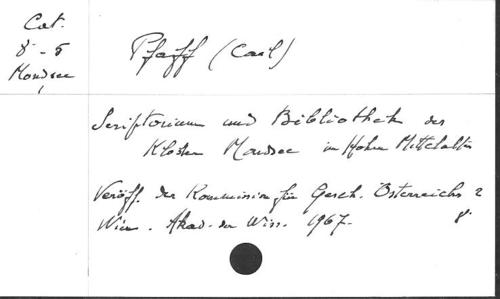 Cat.
8 - 5
Mondsee
Pfaff (Carl)
Scriptorium und Bibliothek des
Kloster Mondsee im hohen Mittelalter
Veröff. der Kommission für Gesch. Österreichs 2
Wien. Akad. der Wiss. 1967. 8°.